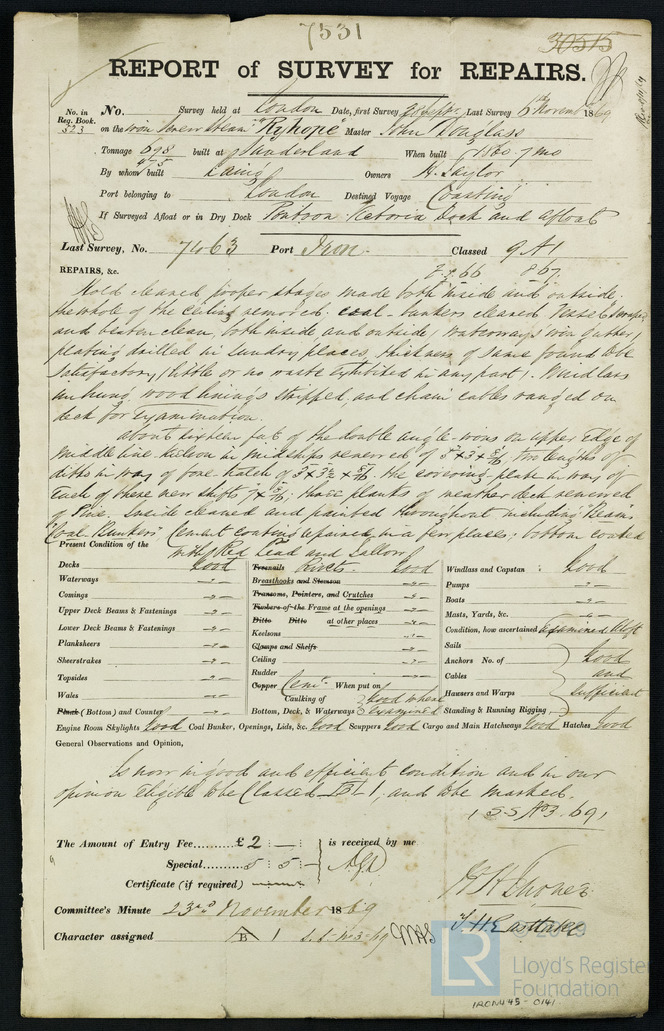 7531
30515
REPORT of SURVEY for REPAIRS.
No. in Reg. Book. 523
No. Survey held at London Date, first Survey 28 Sept. Last Survey 6th Novem 1869
on the Iron Screw Steam "Ryhope" Master John Douglass
Tonnage 698 built at Sunderland When built 1860. 7 mo
By whom built Laing Owners H. Taylor
Port belonging to London Destined Voyage Coasting
If Surveyed Afloat or in Dry Dock Pontoon Victoria Dock and afloat
Last Survey, No. 7463 Port Iron Classed 9 A1
REPAIRS, &c. 66 8 67
Hold cleared proper stages made both inside and outside,
the whole of the ceiling removed: coal-bunkers cleared Vessel scraped
and beaten clean, both inside and outside, waterways iron gutter,
plating drilled in sundry places, thickness of same found to be
satisfactory, (little or no waste exhibited in any part). Windlass
unhung, wood linings stripped, and chain cables ranged on
deck for examination.
About sixteen feet of the double angle-irons on upper edge of
middle line keelson in midships renewed of 5 x 3 x 8/16, two lengths of
ditto in way of fore hatch of the covering plate in way of
each of these new shifts three planks of weather deck renewed
of Pine. Inside cleaned and painted throughout including "Steam
Coal Bunkers" Cement coating repaired in a few places; bottom coated
with Red Lead and Tallow.
Present Condition of the
Decks Good
Waterways "
Comings "
Upper Deck Beams & Fastenings "
Lower Deck Beams & Fastenings "
Planksheers "
Sheerstrakes "
Topsides "
Wales "
Plank (Bottom) and Counter "
Treenails Rivets Good
Breasthooks and Stemson "
Transoms, Pointers, and Crutches "
Timbers of the Frame at the openings "
Ditto Ditto at other places "
Keelsons "
Clamps and Shelfs "
Ceiling "
Rudder "
Copper Cemt. When put on
Caulking of Bottom, Deck, & Waterways Good where examined
Windlass and Capstan Good
Pumps "
Boats "
Masts, Yards, &c. "
Condition, how ascertained examined Aloft
Sails
Anchors No. of
Cables
Hausers and Warps
Standing & Running Rigging
Good and Sufficient
Engine Room Skylights Good Coal Bunker, Openings, Lids, &c. Good Scuppers Good Cargo and Main Hatchways Good Hatches Good
General Observations and Opinion,
Is now in good and efficient condition and in our
opinion eligible to be Classed B 1, and to be marked.
S S No 3. 69
The Amount of Entry Fee......... £ 2 : — : is received by me
Special......... 5 : 5 : —
Certificate (if required)
Committee's Minute 23rd November 1869
Character assigned B 1 S.S. No 3-69
T. H. Eastlake
LR
© 2019
Lloyd's Register
Foundation
IRON445-0141